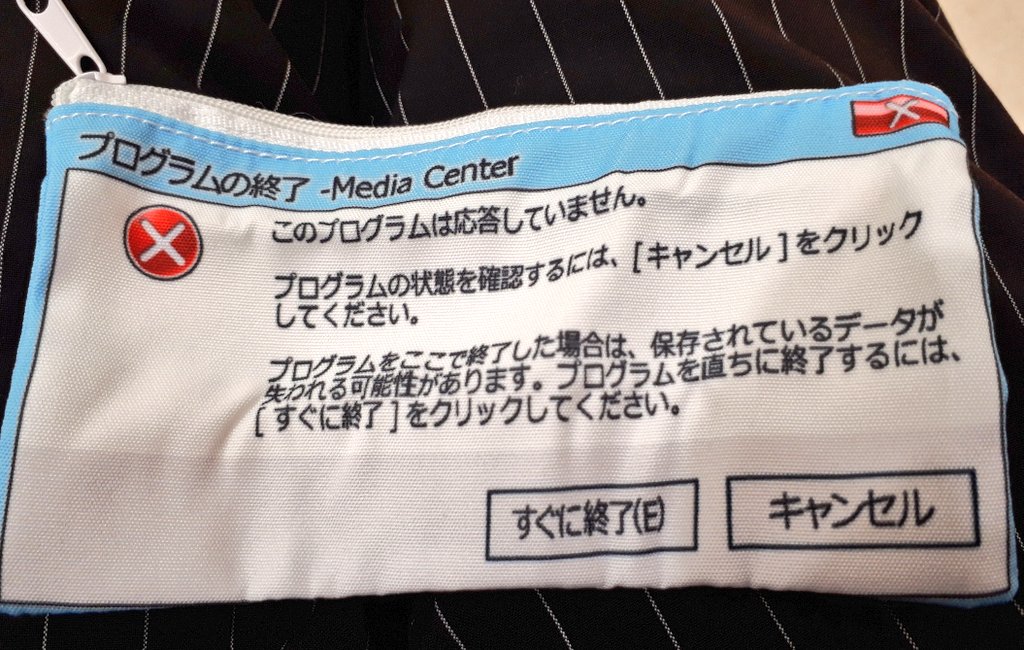 プログラムの終了 -Media Center
このプログラムは応答していません。
プログラムの状態を確認するには、[キャンセル]をクリック
してください。
プログラムをここで終了した場合は、保存されているデータが
失われる可能性があります。プログラムを直ちに終了するには、
[すぐに終了]をクリックしてください。
すぐに終了(E)
キャンセル